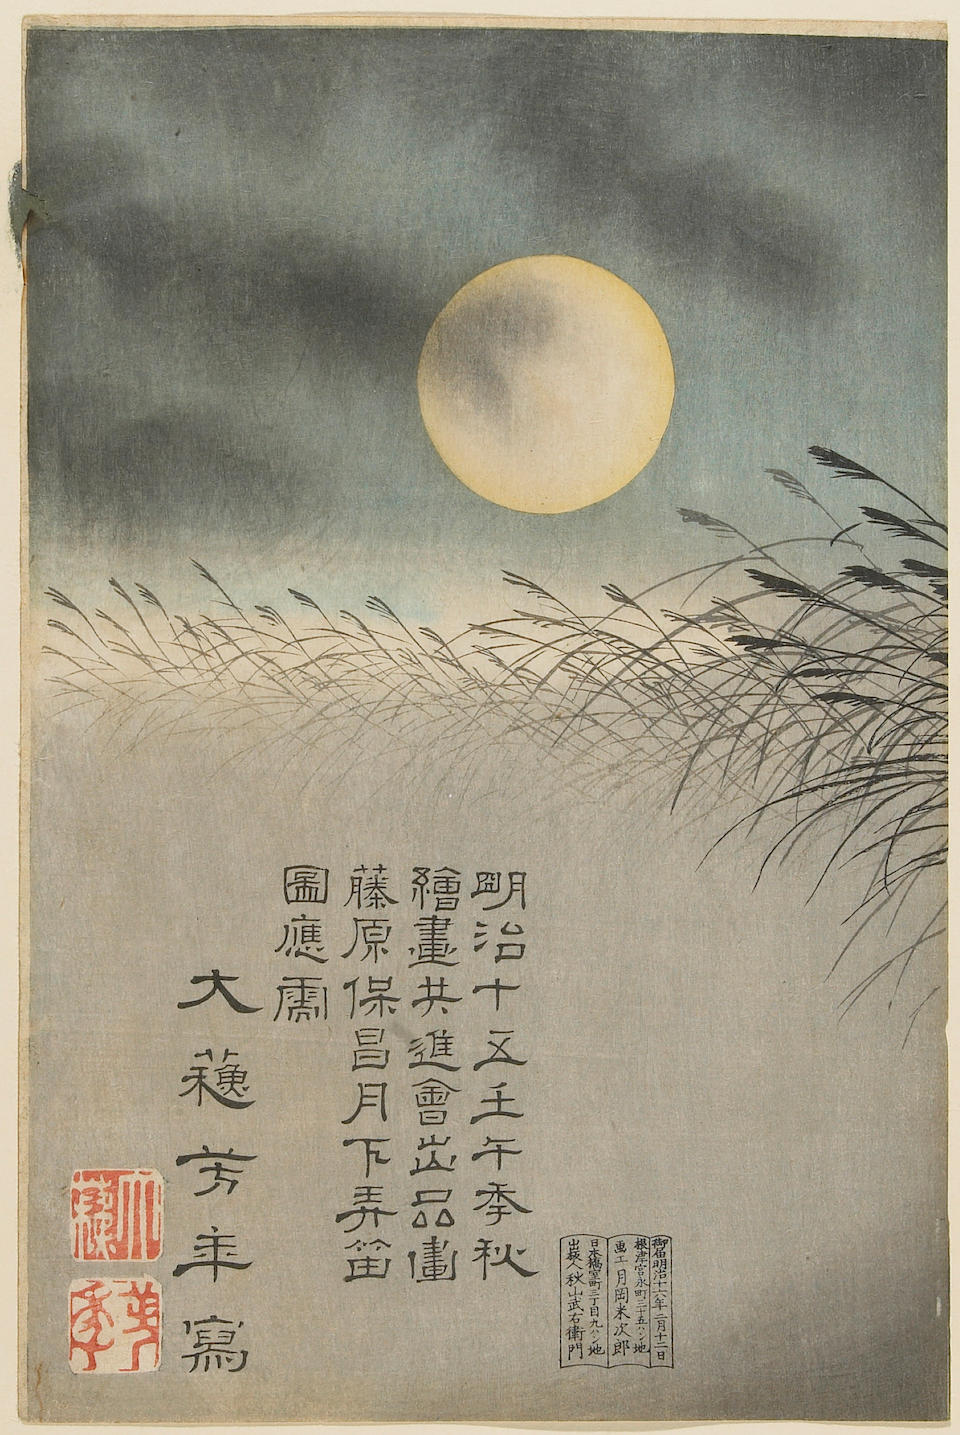 明治十五壬午季秋
繪畫共進會出品畫
藤原保昌月下弄笛
圖應需
大蘓芳年寫
御届明治十六年二月十二日
根津宮永町三十五バン地
画工月岡米次郎
日本橋室町三丁目九バン地
出板人秋山武右衛門
大蘓
芳年